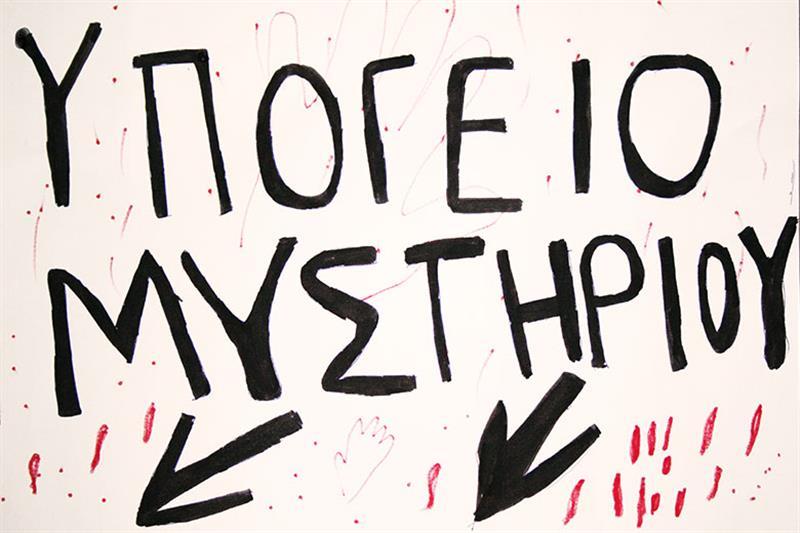 ΥΠΟΓΕΙΟ
ΜΥΣΤΗΡΙΟΥ